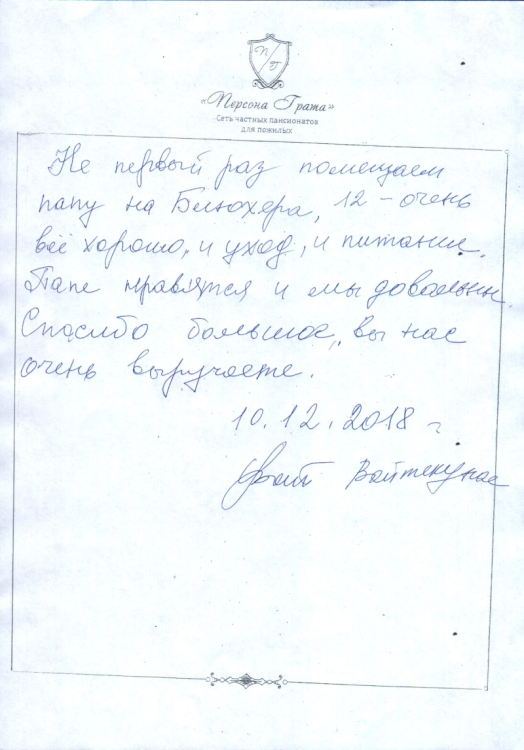 П/Г
«Персона Грата»
Сеть частных пансионатов
для пожилых
Не первый раз помещаем
папу на Блюхера, 12 – очень
всё хорошо, и уход, и питание.
Папе нравятся и мы довольны.
Спасибо большое, вы нас
очень выручаете.
10.12.2018 г
Войтекунас